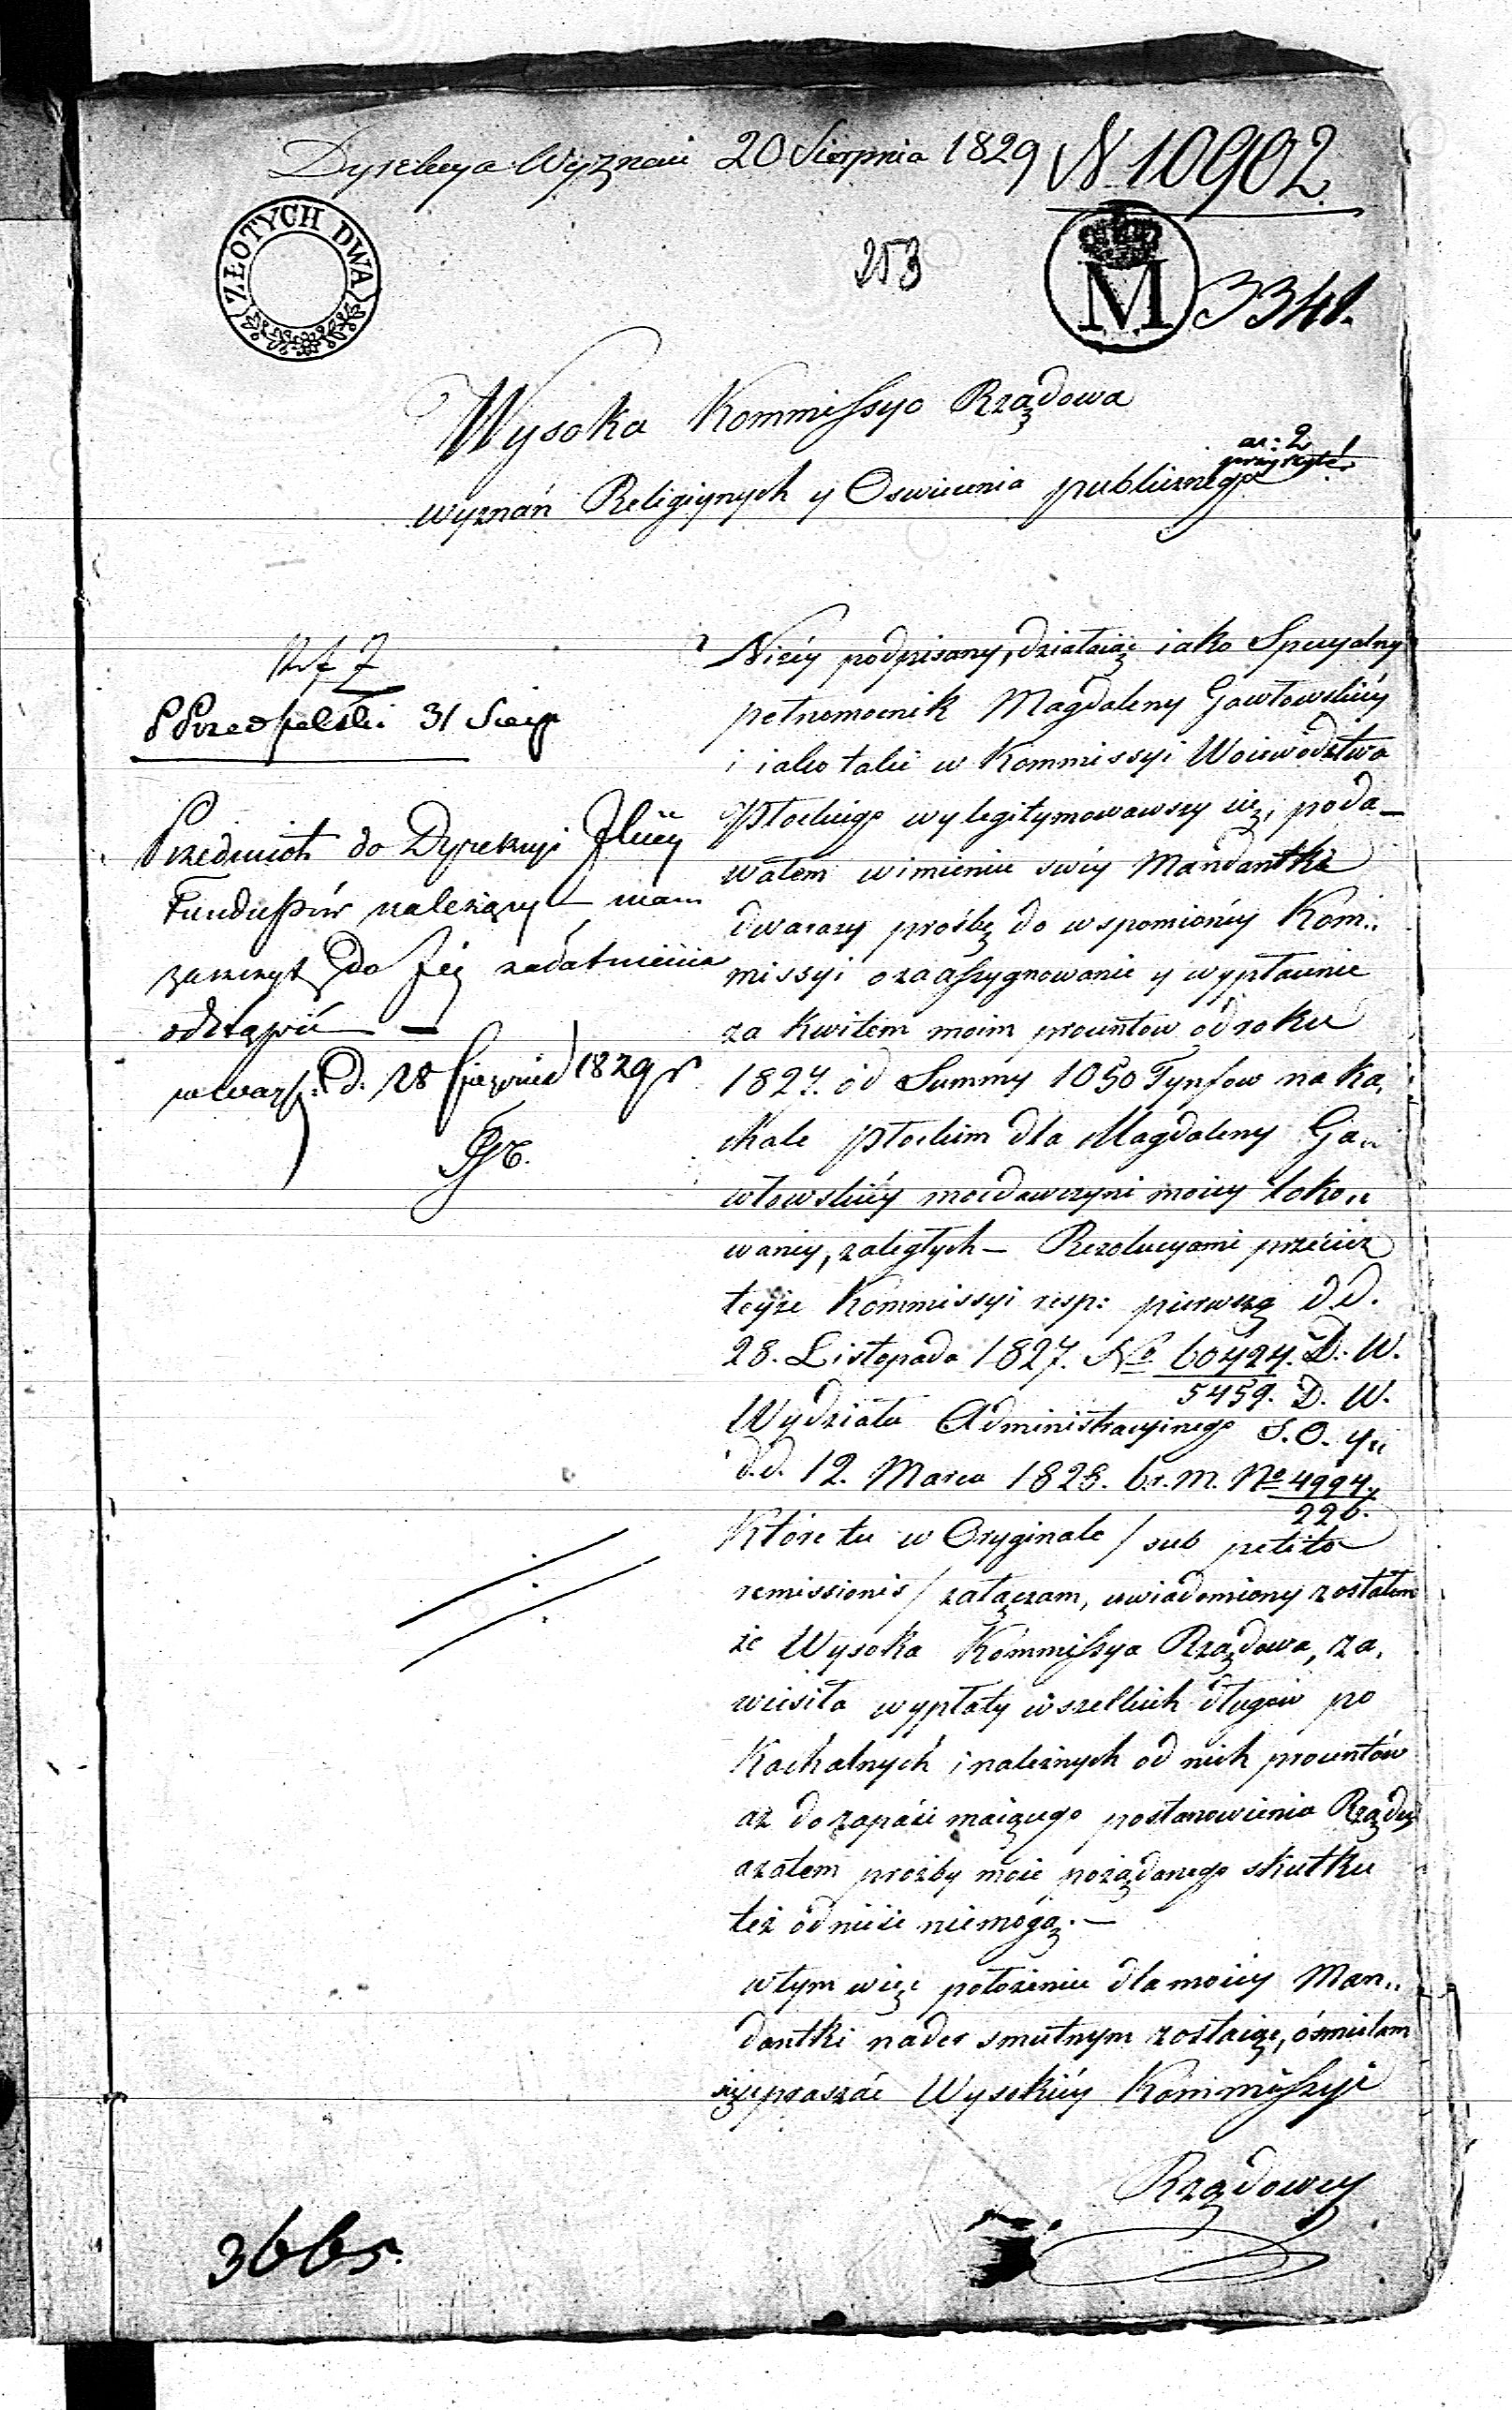 Dyrekcya Wyznań 20 Sierpnia 1829 N 10902
ZŁOTYCH DWA
253
M
3341.
Wysoka Kommissya Rządowa
ar: 2
przyszyte
wyznań Religiynych y Oswiecenia publicznego
31 Sierp
Przedmiot do Dyrekcyi
Funduszów należący mam
zaszczyt do Jey załatwienia
odstąpić —
w Warsz: d. 28 Sierpnia 1829 r
Niżéy podpisany, działaiąc iako Specyalny
pełnomocnik Magdaleny Gawłowskiéy
i iako taki w Kommissyi Woiewództwa
Płockiego wylegitymowawszy się, poda_
wałem wimieniu swéy Mandantki
dwarazy prośbę do wspomionéy Kom„
missyi o zaassygnowanie y wypłacenie
za Kwitem moim procentow od roku
1827. od Summy 1050 Tynfow na Ka„
chale płockim dla Magdaleny Ga„
włowskiéy mocdawczyni moiey loko„
waney, zaległych — Rezolucyami przecież
teyże Kommissyi resp: pierwszą d.d.
28. Listopada 1827. No. 60424. D. W.
5459. D. W.
Wydziału Administracyinego S. O. y„
d.d. 12. Marca 1828. b.r.m. No 4994.
226.
Które tu w Oryginale / sub petito
remissionis / załączam, uwiadomiony zostałem
że Wysoka Kommissya Rządowa, za„
wiesiła wypłaty wszelkich długów po
Kachalnych i należnych od nich procentów
aż do zapaść maiącego postanowienia Rządu,
azatem prożby moie pożądanego skutku
też odnieść niemógą. —
wtym więc położeniu dla moiéy Man„
dantki nader smutnym zostaiąc, ośmielam
się upraszać Wysokiéy Kommissyi
Rządowey
3665.